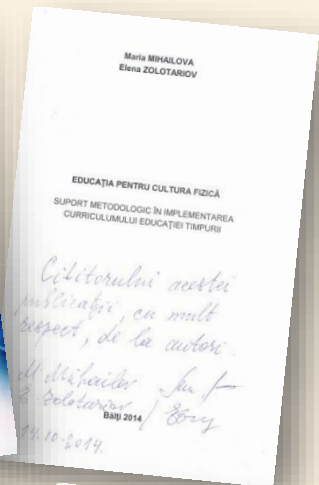 Maria MIHAILOVA
Elena ZOLOTARIOV
EDUCAŢIA PENTRU CULTURA FIZICĂ
SUPORT METODOLOGIC ÎN IMPLEMENTAREA
CURRICULUMULUI EDUCAŢIEI TIMPURII
Cititorului acestei
publicaţii, cu mult
respect, de la autori.
M. Mihailov
E. Zolotariov
Bălţi 2014
14.10.2014.